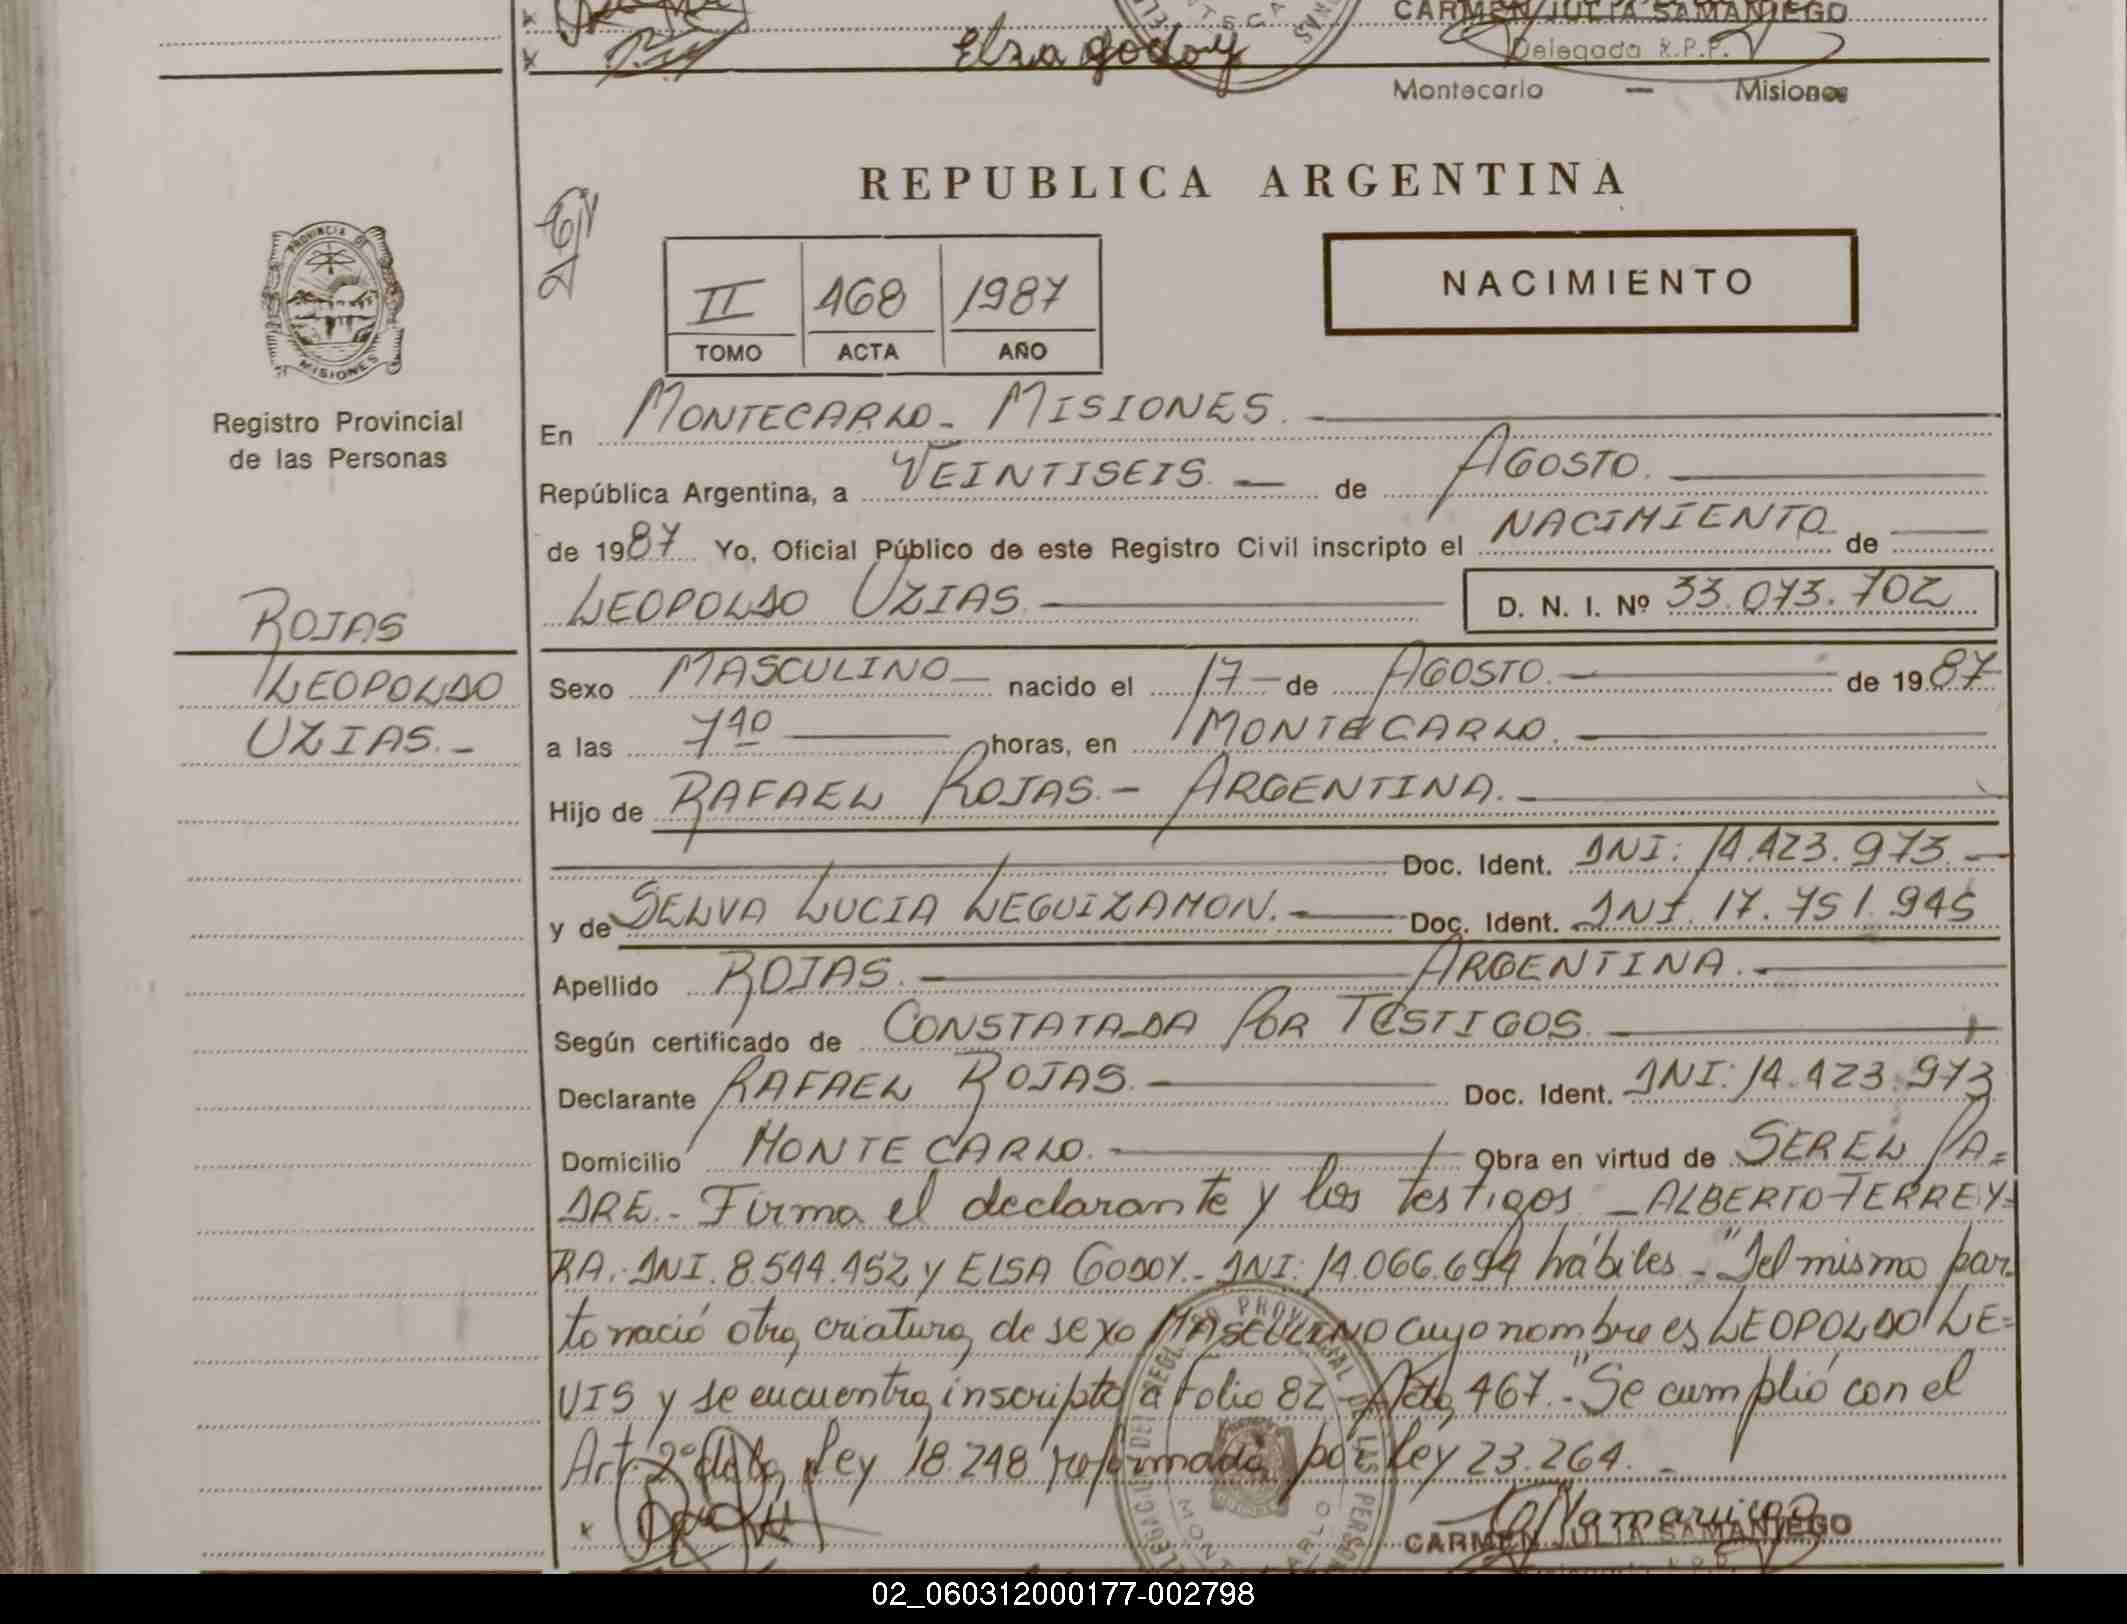 Elsa Godoy
CARMEN JULIA SAMANIEGO
Delegada R.P.P.
Montecarlo — Misiones
REPUBLICA ARGENTINA
PROVINCIA DE
MISIONES
Registro Provincial
de las Personas
II 468 1987
TOMO ACTA AÑO
NACIMIENTO
En MONTECARLO - MISIONES.
República Argentina, a VEINTISEIS de AGOSTO.
de 1987 Yo, Oficial Público de este Registro Civil inscripto el NACIMIENTO de
LEOPOLDO UZIAS D. N. I. Nº 33.073.702
ROJAS
LEOPOLDO
UZIAS.-
Sexo MASCULINO nacido el 17 de AGOSTO. de 1987
a las 7 40 horas, en MONTECARLO.
Hijo de RAFAEL ROJAS.- ARGENTINA.
Doc. Ident. DNI: 14.423.973.
y de SELVA LUCIA LEGUIZAMON. Doc. Ident. DNI. 17.751.945
Apellido ROJAS. ARGENTINA.
Según certificado de CONSTATADA POR TESTIGOS.
Declarante RAFAEL ROJAS. Doc. Ident. DNI: 14.423.973
Domicilio MONTECARLO. Obra en virtud de SER EL PA=
DRE.- Firma el declarante y los testigos - ALBERTO FERREY=
RA.- DNI. 8.544.452 y ELSA GODOY.- DNI: 14.066.694 hábiles.- "Del mismo par-
to nació otra criatura de sexo MASCULINO cuyo nombre es LEOPOLDO LE=
VIS y se encuentra inscripto a Folio 82 Acta 467.-" Se cumplió con el
Art. 2º de la Ley 18.248 reformada por Ley 23.264.-
CARMEN JULIA SAMANIEGO
02_060312000177-002798